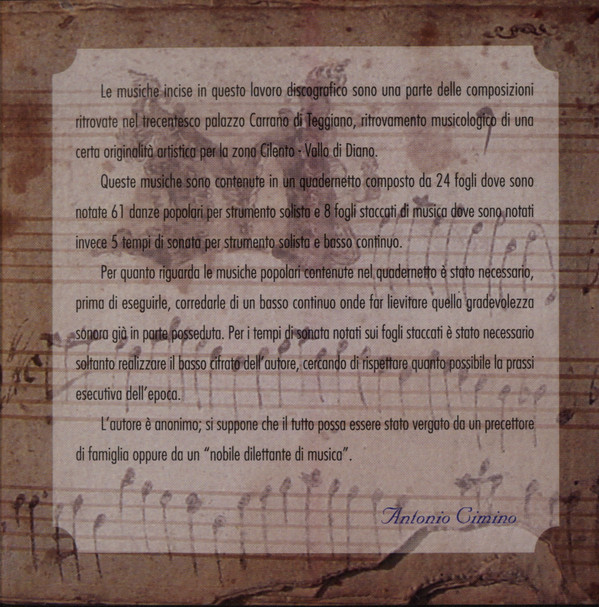 Le musiche incise in questo lavoro discografico sono una parte delle composizioni
ritrovate nel trecentesco palazzo Carrano di Teggiano, ritrovamento musicologico di una
certa originalità artistica per la zona Cilento - Vallo di Diano.
Queste musiche sono contenute in un quadernetto composto da 24 fogli dove sono
notate 61 danze popolari per strumento solista e 8 fogli staccati di musica dove sono notati
invece 5 tempi di sonata per strumento solista e basso continuo.
Per quanto riguarda le musiche popolari contenute nel quadernetto è stato necessario,
prima di eseguirle, corredarle di un basso continuo onde far lievitare quella gradevolezza
sonora già in parte posseduta. Per i tempi di sonata notati sui fogli staccati è stato necessario
soltanto realizzare il basso cifrato dell'autore, cercando di rispettare quanto possibile la prassi
esecutiva dell'epoca.
L'autore è anonimo; si suppone che il tutto possa essere stato vergato da un precettore
di famiglia oppure da un "nobile dilettante di musica".
Antonio Cimino